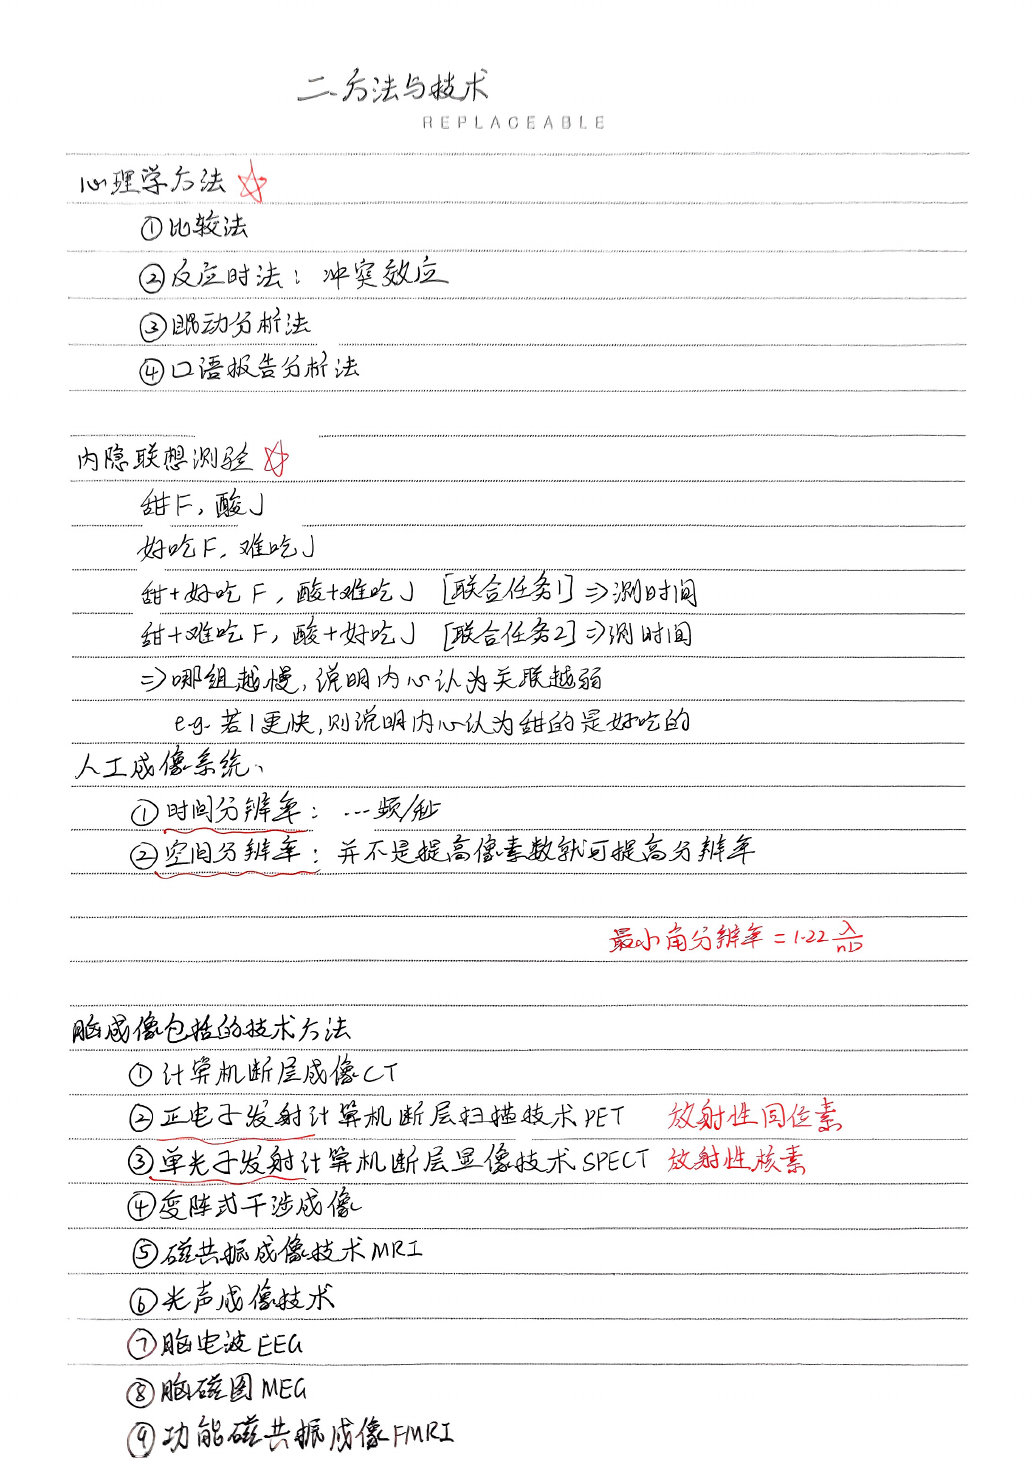 二.方法与技术
REPLACEABLE
心理学方法
①比较法
②反应时法：冲突效应
③眼动分析法
④口语报告分析法
内隐联想测验
甜F，酸J
好吃F，难吃J
甜+好吃F，酸+难吃J [联合任务1]⇒测时间
甜+难吃F，酸+好吃J [联合任务2]⇒测时间
⇒哪组越慢，说明内心认为关联越弱
e.g. 若1更快，则说明内心认为甜的是好吃的
人工成像系统、
①时间分辨率：…频/秒
②空间分辨率：并不是提高像素数就可提高分辨率
最小角分辨率=1.22 λ/nD
脑成像包括的技术方法
①计算机断层成像CT
②正电子发射计算机断层扫描技术PET 放射性同位素
③单光子发射计算机断层显像技术SPECT 放射性核素
④变阵式干涉成像
⑤磁共振成像技术MRI
⑥光声成像技术
⑦脑电波EEG
⑧脑磁图MEG
⑨功能磁共振成像FMRI